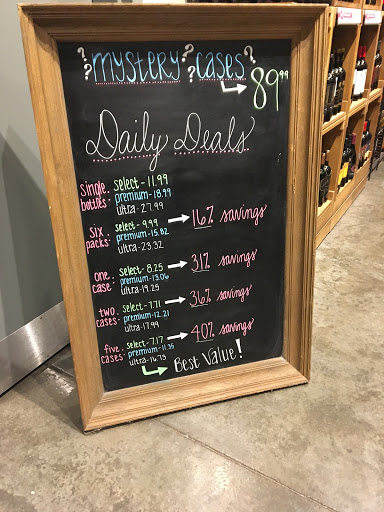 ? mystery ? cases ?
? ?
89.99
Daily Deals
single bottles: select - 11.99
premium - 18.99
ultra - 27.99
six packs: select - 9.99 → 16% savings
premium - 15.82
ultra - 23.32
one case: select - 8.25 → 31% savings
premium - 13.06
ultra - 19.25
two cases: select - 7.71 → 36% savings
premium - 12.21
ultra - 17.99
five cases: select - 7.17 → 40% savings
premium - 11.35
ultra - 16.75
Best Value!